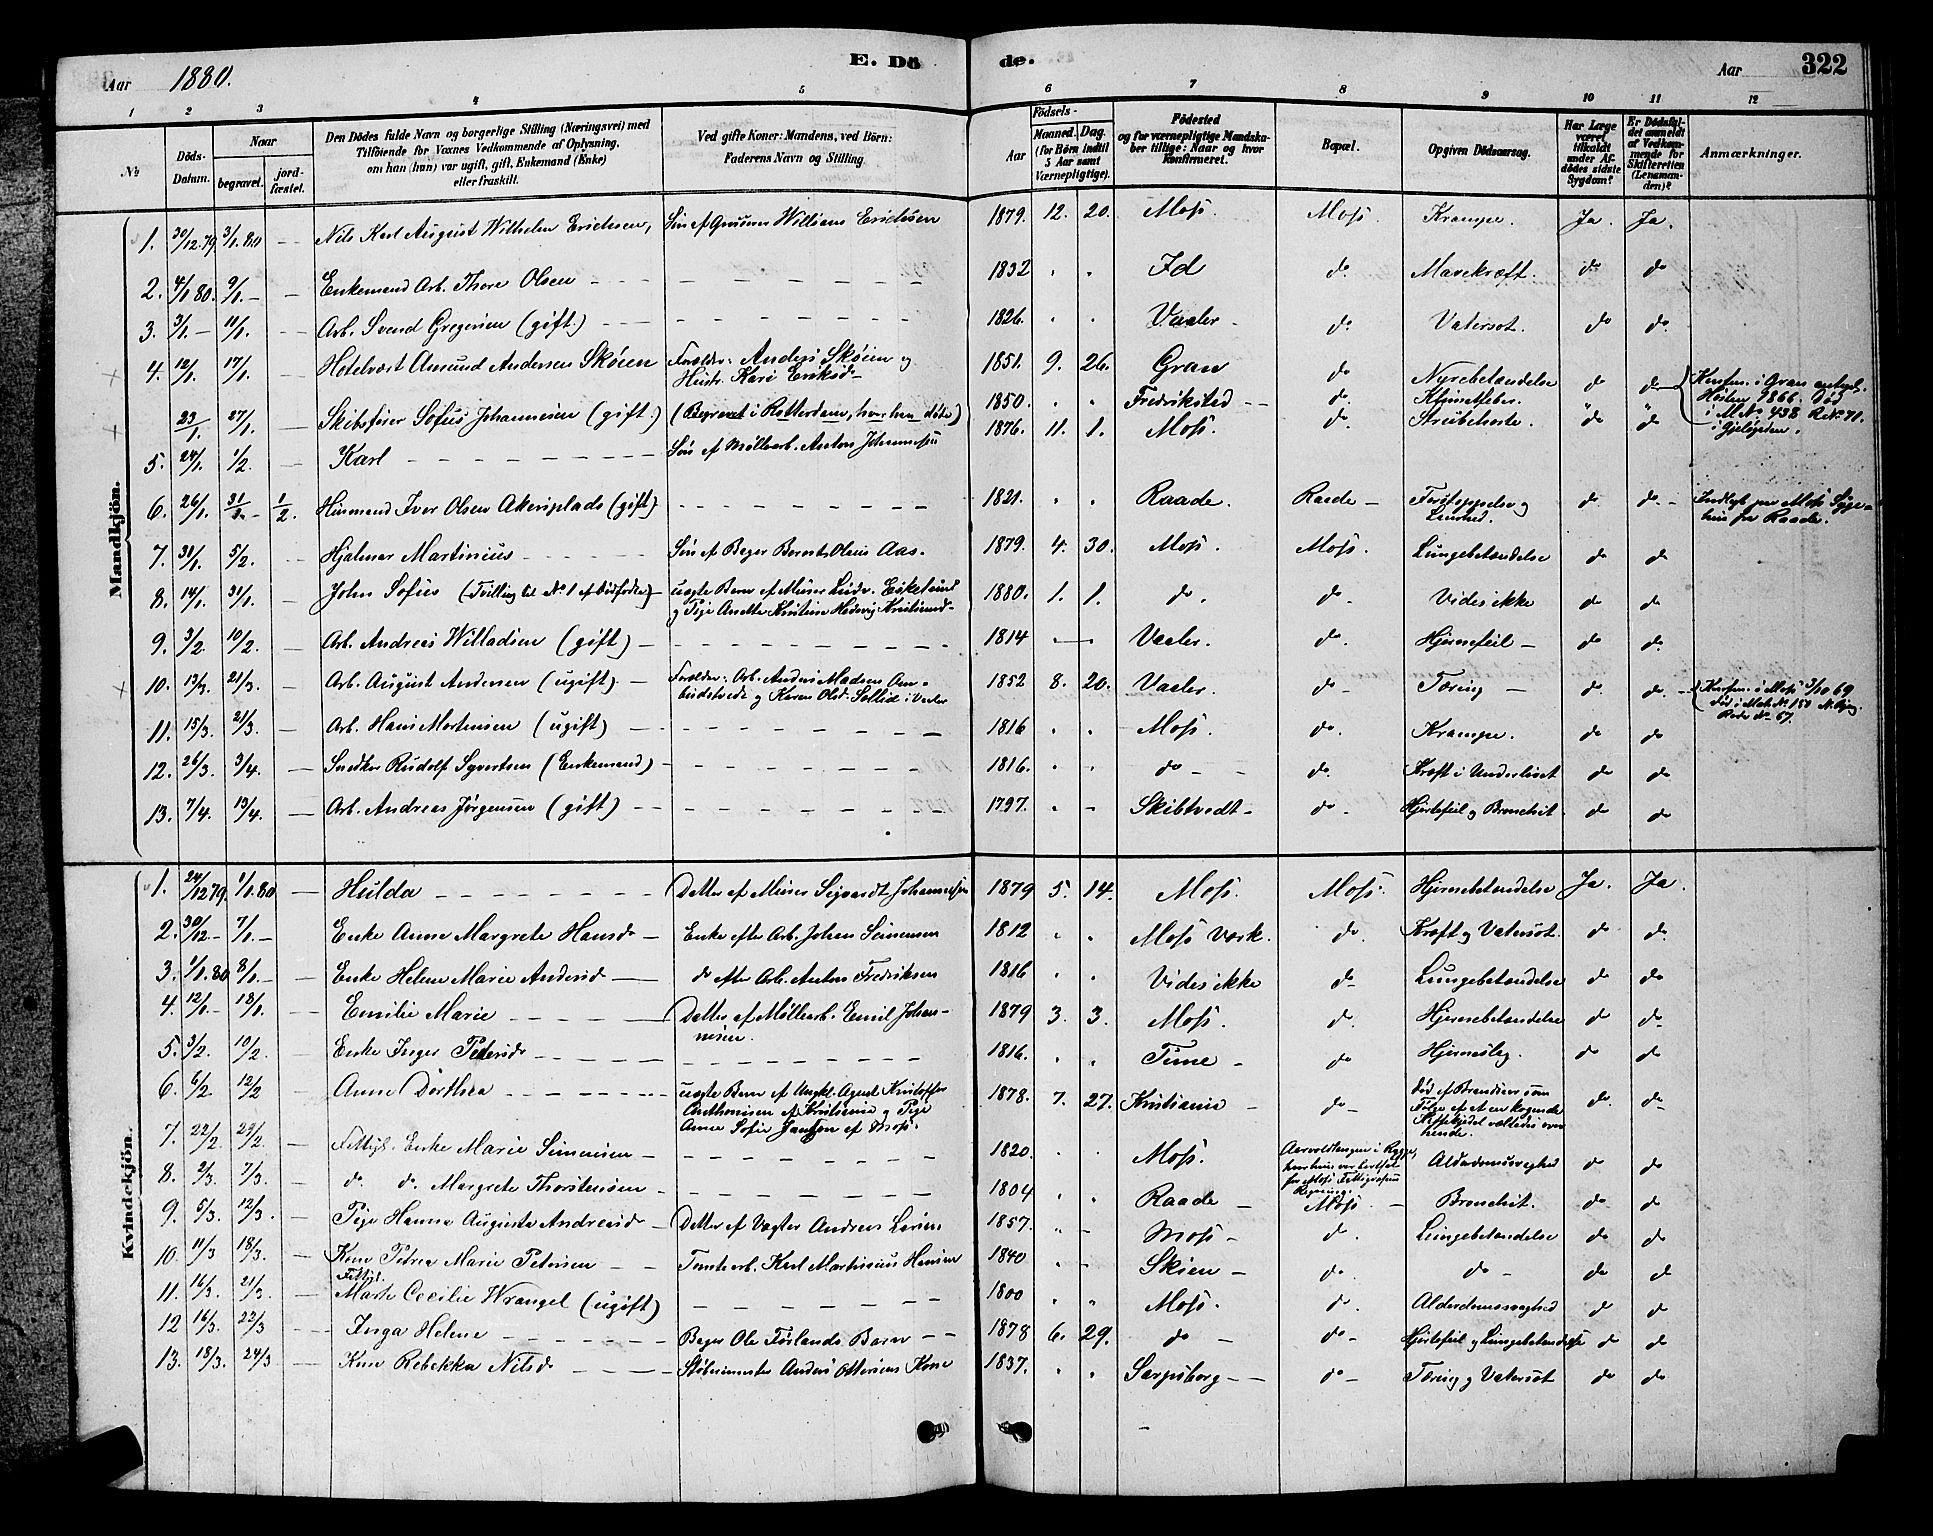 E. Dö de.
Aar 1880. Aar 322
1 2 3 4 5 6 7 8 9 10 11 12
№
Döds-Datum.
Naar begravet. jordfæstet.
Den Dödes fulde Navn og borgerlige Stilling (Næringsvei) med
Tilföiende for Voxnes Vedkommende af Oplysning,
om han (hun) var ugift, gift, Enkemand (Enke)
eller fraskilt.
Ved gifte Koner: Mandens, ved Börn:
Faderens Navn og Stilling.
Födsels-
Aar
Maaned. Dag.
(for Börn indtil
5 Aar samt
Værnepligtige).
Födested
og for værnepligtige Mandska-
ber tillige: Naar og hvor
Konfirmeret.
Bopæl.
Opgiven Dödsaarsag.
Har Læge
været
tilkaldt
under Af-
dödes sidste
Sygdom?
Er Dödsfal-
det anmeldt
af Vedkom-
mende for
Skifteretten
(Lensman-
den)?
Anmærkninger.
Mandkjön.
1. 30/12.79. 3/1.80 — Nils Karl August Wilhelm Erichsen, Sön af William Erichsen 1879. 12. 20. Moss. Moss Krampe. Ja. Ja.
2. 4/1 80. 9/1. — — Enkemand Arb. Thore Olsen 1832 Id do Mavekræft. do do
3. 3/1. — 11/1. — Arb. Svend Gregersen (gift) 1826. Vaaler do. Vatersot. do do.
4. 12/1. 17/1. — Hotelvært Amund Andersen Skøien Forældre: Anders Skøien og 1851. 9. 26. Gran do Nyrebetændelse do do
Hustr. Kari Eriksd. Konfirm. i Gran
Høsten 1866. Död
i M.No 438
23/1. 27/1. — Skibsfører Sofus Johannesen (gift.) (Begravet i Rotterdam, hvor han döde) 1850. Fredrikstad do
5. 24/1. 1/2. — Karl Sön af Møllearb. Anton Johannesen 1876. 11. 1. Moss. do. Strubehoste. do do
6. 26/1. 31/1. 1/2. Husmand Iver Olsen Akersplads (gift) 1821. Raade. Raade — Forstoppelse og do. do.
fra Raade.
7. 31/1. 5/2. — Hjalmar Martinius Sön af Bager Bernt Olsen Aas. 1879. 4. 30. Moss. Moss. Lungebetændelse do do
8. 14/1. 31/1. — John Sofus (Tvilling til No 1 af Dödfødte) uægte Barn af Ludv. Eskelund 1880. 1. 1. do. do. Vides ikke do do
og Pige Anette Kristine Hedevig
9. 3/2. 10/2. — Arb. Andreas Willadsen (gift) 1814 Vaaler. do. Hjernefeil — do do.
10. 13/3. 21/3. — Arb. August Andersen (ugift) Forældre: Arb. Anders Madsen 1852 8. 20. Vaaler. do Tæring do. do.
og Karen Olsd. Sollid i Vaaler Konfirm. i Moss 3/10 69
11. 15/3. 21/3 — Arb. Hans Mortensen (ugift) 1816 Moss. do. Krampe. do do
12. 26/3. 3/4. — Snedker Rudolf Syvertsen (Enkemand) 1816. do do. Kræft i Underlivet do do
13. 7/4. 13/4. — Arb. Andreas Jörgensen (gift) 1797. Skibtvedt do. Hjertefeil og Bronchit. do do
Kvindekjön.
1. 24/12 79. 1/1.80 — Hulda Datter af Murer Sigvardt Johannesen 1879 5. 14. Moss. Moss. Hjernebetændelse Ja. Ja.
2. 30/12. — 7/1. — Enke Anne Margrete Hansd. Enke efter Arb. Johan Simensen 1812 Moss Værk. do. Kræft og Vatersot. do do.
3. 1/1.80 8/1. — Enke Helene Marie Andersd. do efter Arb. Anton Fredriksen 1816 Vides ikke do Lungebetændelse do do
4. 12/1. — 18/1. — Emilie Marie Datter af Møllearb. Emil Johan- 1879 3. 3. Moss. do. Hjernebetændelse do do
nesen.
5. 3/2. 10/2. — Enke Inger Petersd. 1816. do Hjerneslag. do do
6. 6/2. 12/2 — Anne Dorthea uægte Barn af Agent Kristoffer 1878. 7. 27. Kristiania do Död af Brandsaar som do. do
Anthonisen af Kristiania og Pige Følge af at en kogende
Anne Sofie Jansen af Moss. Kaffekjedel væltedes over
hende.
7. 22/2. 29/2. — Fattigl. Enke Marie Simensen 1820. Moss. Alderdomssvaghed do do
8. 2/3. 7/3. — do. do. Margrete Thorstensen 1804 Raade Moss Bronchit. do do
9. 5/3. 12/3. — Pige Hanna Augusta Andreasd. Datter af Vægter Andreas Larsen 1857. Moss do. Lungebetændelse do do
10. 11/3 18/3. — Kone Petrea Marie Petersen Tomtearb. Karl Martinius Hansen 1840 Skien do do do do
11. 16/3. 21/3. — Fattigl. Marte Cecilie Wrangel (ugift) 1800 Moss. do. Alderdomssvaghed do do
12 16/3. 22/3 — Inga Helene Bager Ole Førlands Barn 1878 6. 29. do do Hjertefeil og Lungebetændelse do do
13. 18/3. 24/3 — Kone Rebekka Nilsd. Støbemester Anders Ottersens Kone 1837. Sarpsborg do Tæring og Vatersot do do